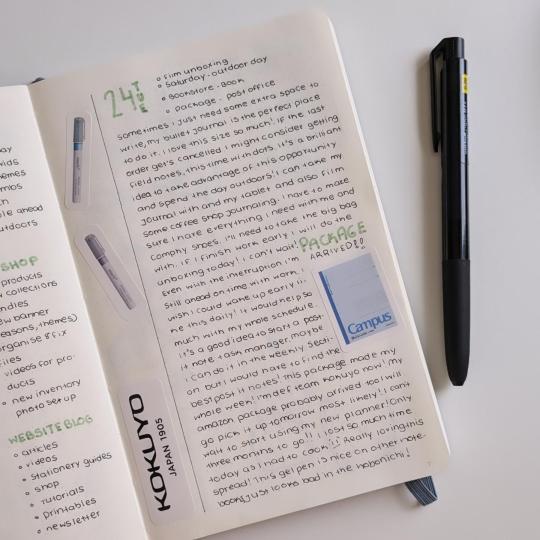 ay
vids
hemes
mbos
ch
ble ahead
utdoors
SHOP
products
w collections
ndles
ew banner
easons, themes)
organise & fix
files
videos for pro-
ducts
new inventory
photo setup
WEBSITE BLOG
articles
videos
stationery guides
shop
tutorials
printables
newsletter
24 TUE
film unboxing
saturday - outdoor day
bookstore - book
package - post office
sometimes i just need some extra space to
write, my bullet journal is the perfect place
to do it. i love this size so much! if the last
order gets cancelled i might consider getting
field notes, this time with dots. it's a brilliant
idea to take advantage of this opportunity
and spend the day outdoors! i can take my
journal with and my tablet and also film
some coffee shop journaling. i have to make
sure i have everything i need with me and
comphy shoes, i'll need to take the big bag
with. if i finish work early i will do the
unboxing today! i can't wait! PACKAGE
ARRIVED!!
Even with the interruption i'm
still ahead on time with work. i
wish i could wake up early li-
ke this daily! it would help so
much with my whole schedule.
it's a good idea to start a post-
it note task manager, maybe
i can do it in the weekly secti-
on, but i would have to find the
best post it notes! this package made my
whole week! i'm def team Kokuyo now! my
amazon package probably arrived too! i will
go pick it up tomorrow most likely! i can't
wait to start using my new planner! only
three months to go!! i lost so much time
today as i had to cook. Really loving this
spread! this gel pen is nice on other note-
books, just looks bad in the hobonichi!
Campus
KOKUYO
JAPAN 1905